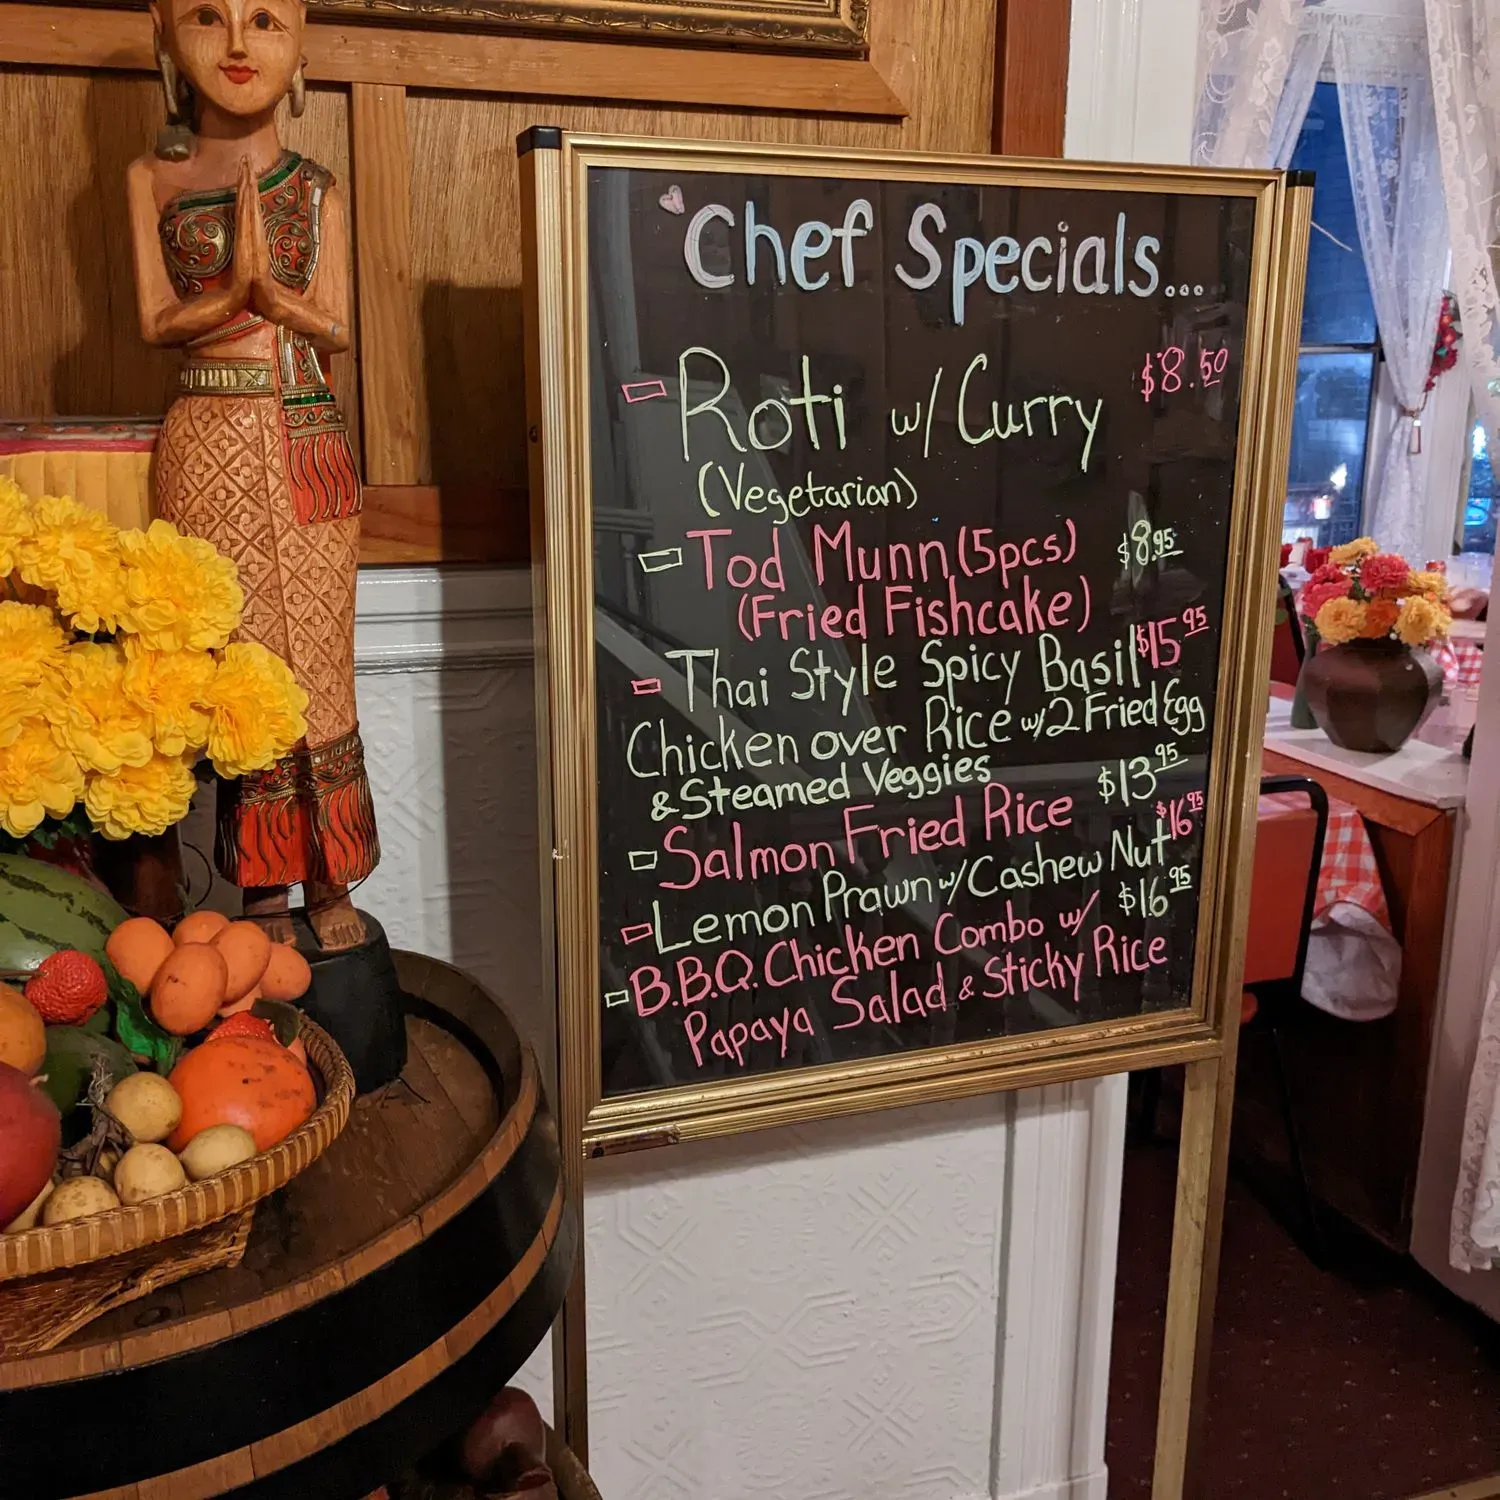 Chef Specials...
Roti w/ Curry $8.50
(Vegetarian)
Tod Munn (5pcs) $8.95
(Fried Fishcake)
Thai Style Spicy Basil $15.95
Chicken over Rice w/ 2 Fried Egg
& Steamed Veggies
Salmon Fried Rice $13.95
Lemon Prawn w/ Cashew Nut $16.95
B.B.Q. Chicken Combo w/ $16.95
Papaya Salad & Sticky Rice